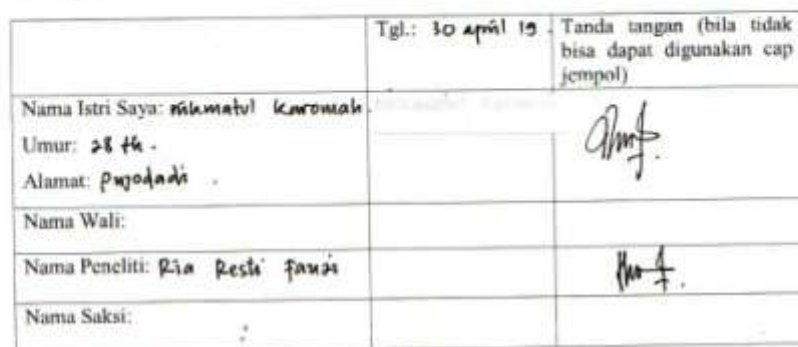 Tgl.: 30 april 19. Tanda tangan (bila tidak
bisa dapat digunakan cap
jempol)
Nama Istri Saya: Karomah.
Umur: 28 th.
Alamat: Pujodadi.
Nama Wali:
Nama Peneliti: Ria Resti Fauzi
Nama Saksi: